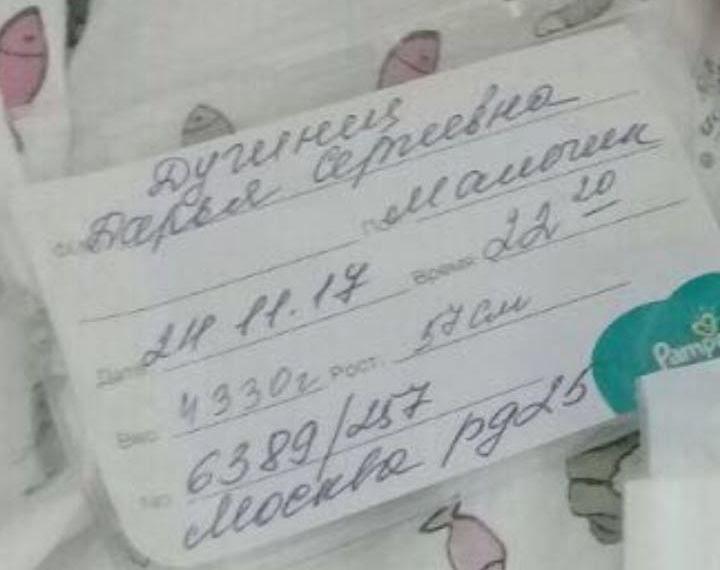 Дугинец
Дарья Сергеевна
Мальчик
Дата 24 11.17 Время 22 20
Вес 4330г Рост: 57 см
№ 6389/257
Москва рд25
Pampe